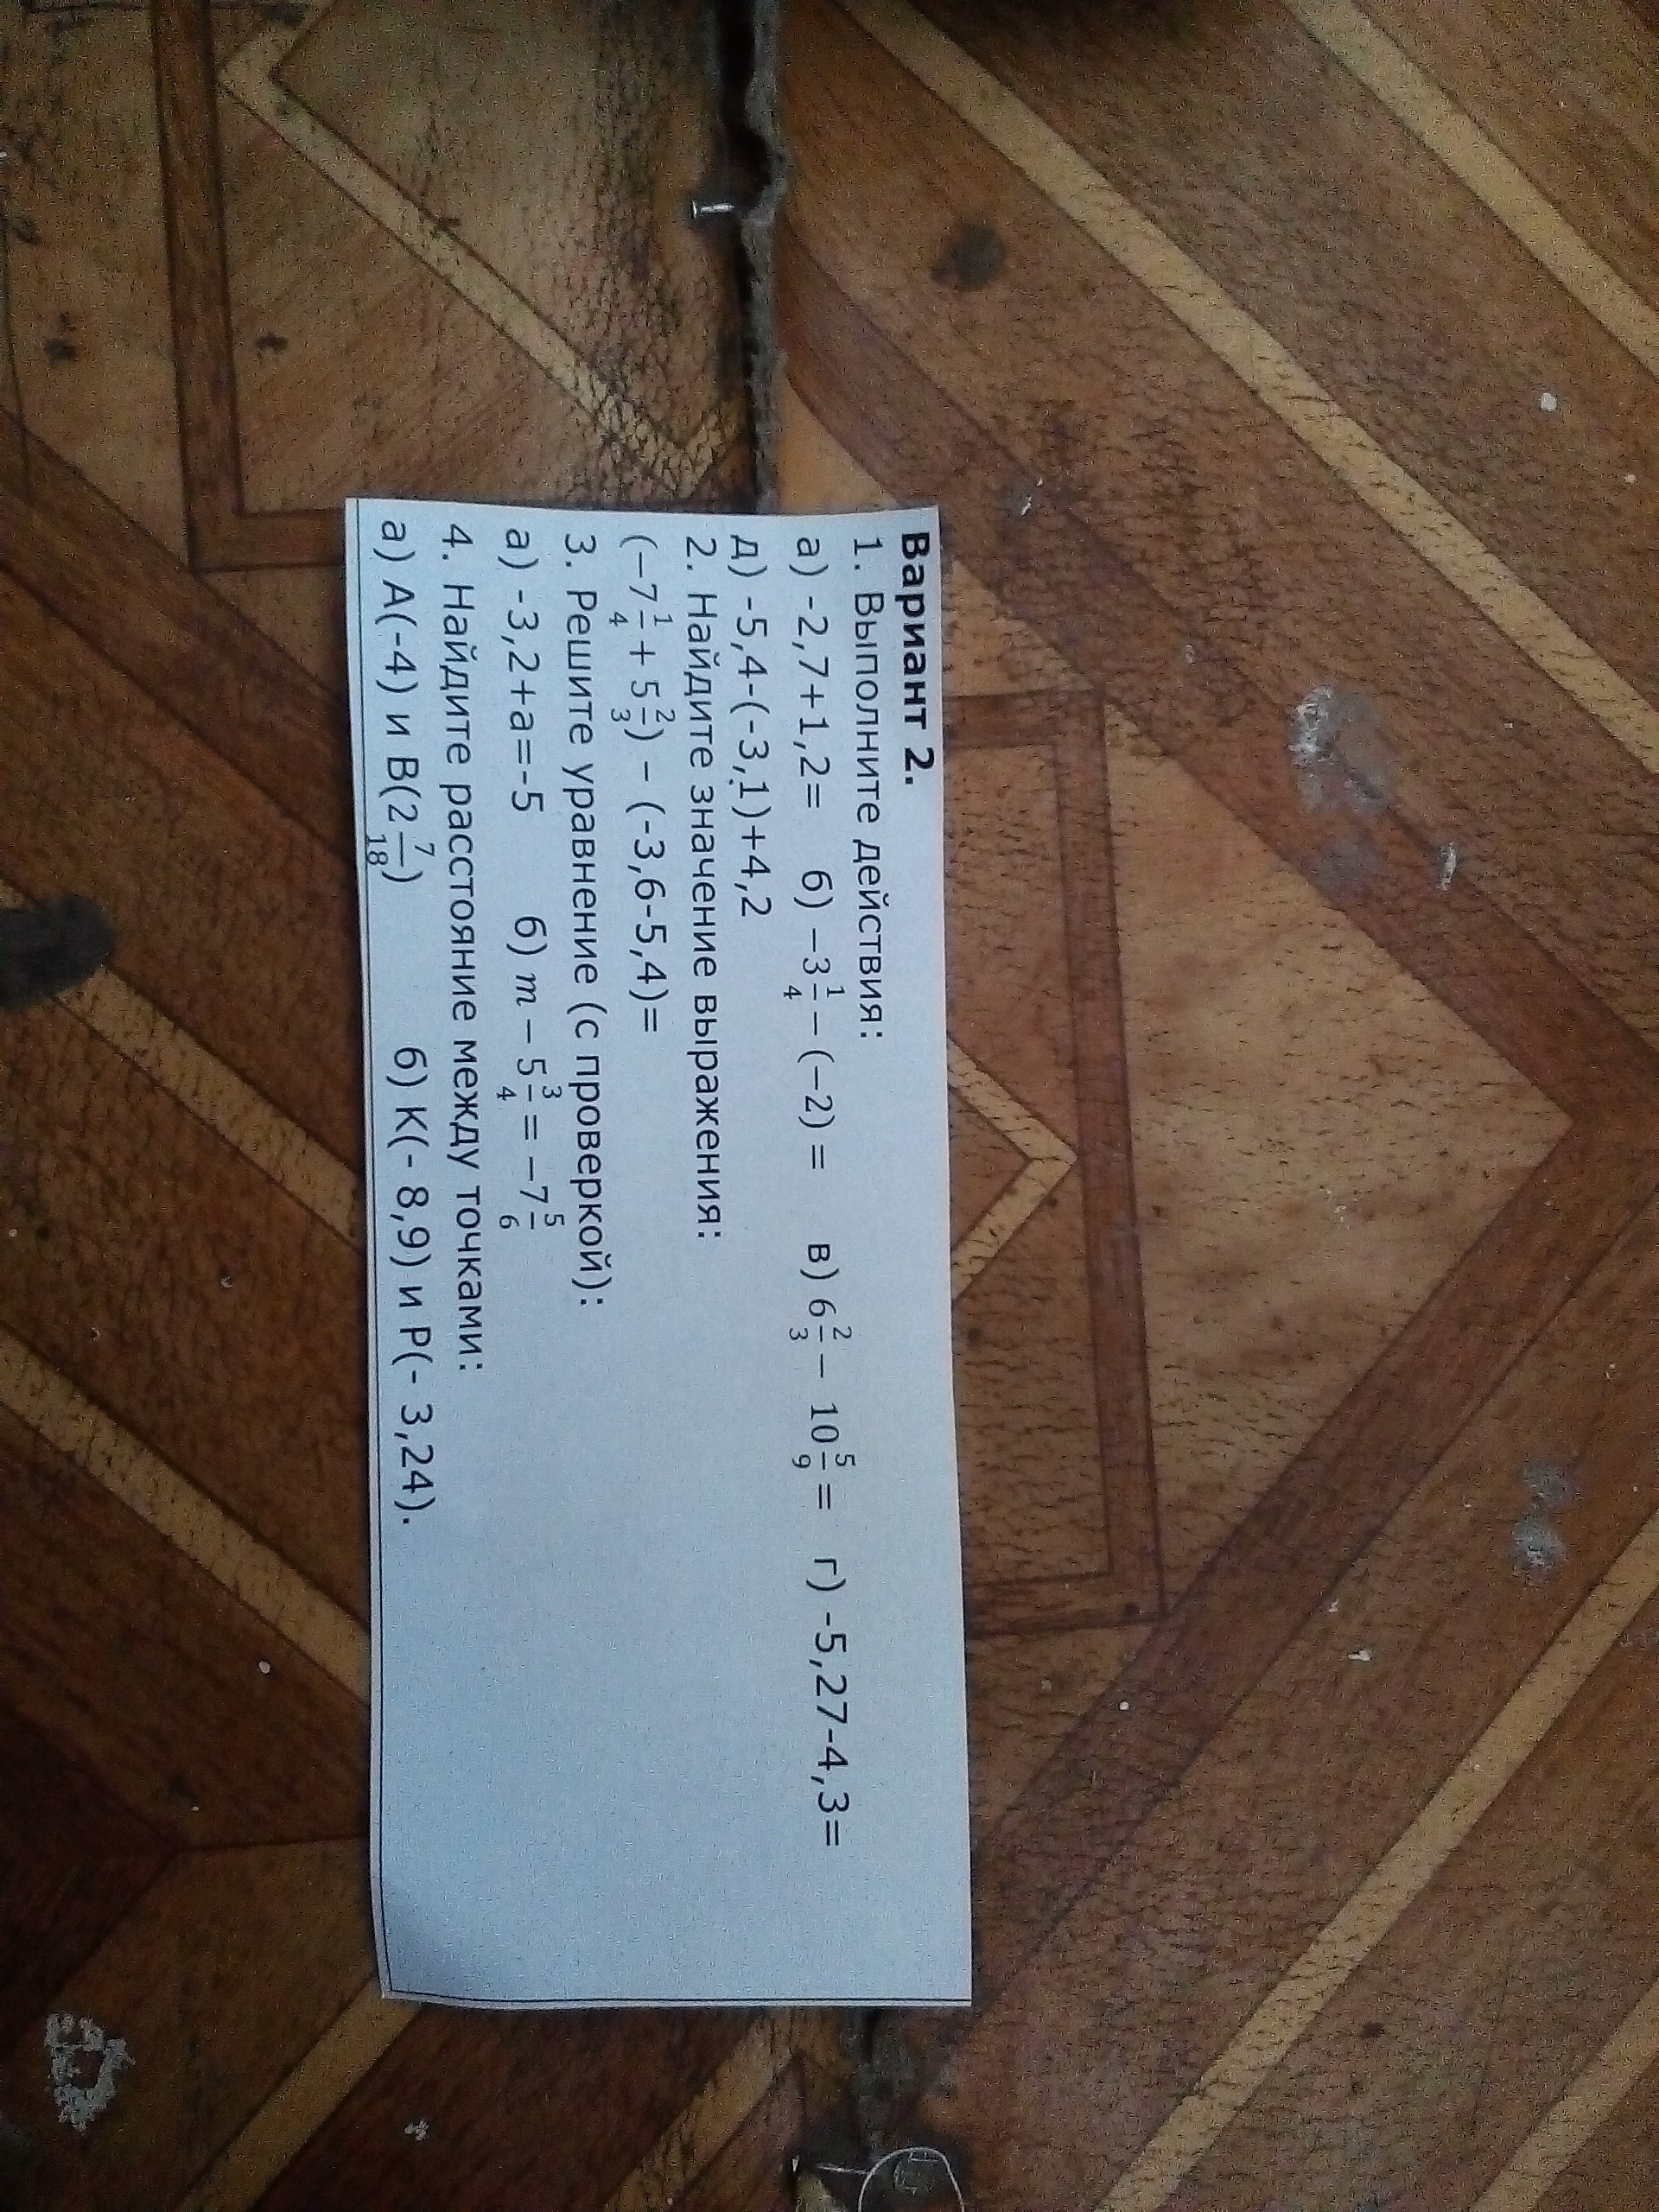 Вариант 2.
1. Выполните действия:
а) -2,7+1,2= б) −3 1/4 − (−2) = в) 6 2/3 − 10 5/9 = г) -5,27-4,3=
д) -5,4-(-3,1)+4,2
2. Найдите значение выражения:
(−7 1/4 + 5 2/3) − (-3,6-5,4)=
3. Решите уравнение (с проверкой):
а) -3,2+а=-5 б) m − 5 3/4 = −7 5/6
4. Найдите расстояние между точками:
а) А(-4) и В(2 7/18) б) К(- 8,9) и Р(- 3,24).